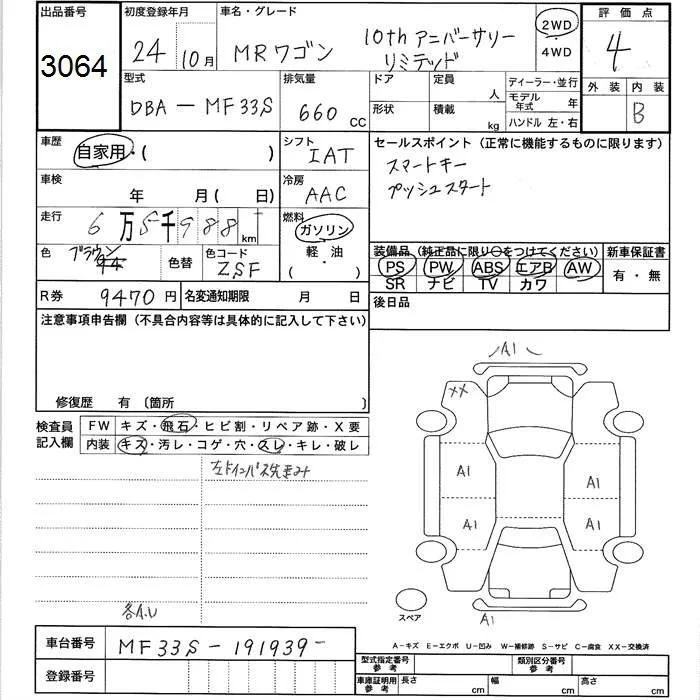 出品番号
3064
初度登録年月
24 10月
車名・グレード
MRワゴン 10th アニバーサリー
リミテッド
2WD
4WD
評価点
4
外装 内装
B
型式
DBA-MF33S
排気量
660 cc
ドア
形状
定員
人
積載
kg
ディーラー・並行
モデル年式 年
ハンドル 左・右
車歴
自家用・( )
シフト
IAT
セールスポイント (正常に機能するものに限ります)
スマートキー
プッシュスタート
車検
年 月( 日)
冷房
AAC
走行
6万5千988km
燃料
ガソリン
軽・油
( ・ )
色
ブラウン
色替
色コード
ZSF
装備品 (純正品に限り○をつけてください)
PS PW ABS エアB AW
SR ナビ TV カワ
新車保証書
有・無
R券 9470円
名変通知期限 月 日
後日品
注意事項申告欄 (不具合内容等は具体的に記入して下さい)
修復歴 有 〔箇所
検査員
記入欄
FW キズ・飛石・ヒビ割・リペア跡・X要
内装 キズ・汚レ・コゲ・穴・スレ・キレ・破レ
各A.U
A1
XX
A1
A1
A1
A1
A1
スペア
A-キズ E-エクボ U-凹み W-補修跡 S-サビ C-腐食 XX-交換済
車台番号
MF33S-191939-
登録番号
型式指定番号
参考
類別区分番号
参考
車庫証明用
参考
長さ cm
幅 cm
高さ cm